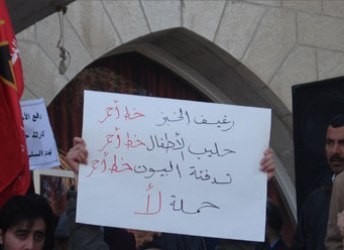 رغيف الخبز خط أحمر
حليب الأطفال خط أحمر
تدفئة البيوت خط أحمر
حملة لأ
رفع الأ